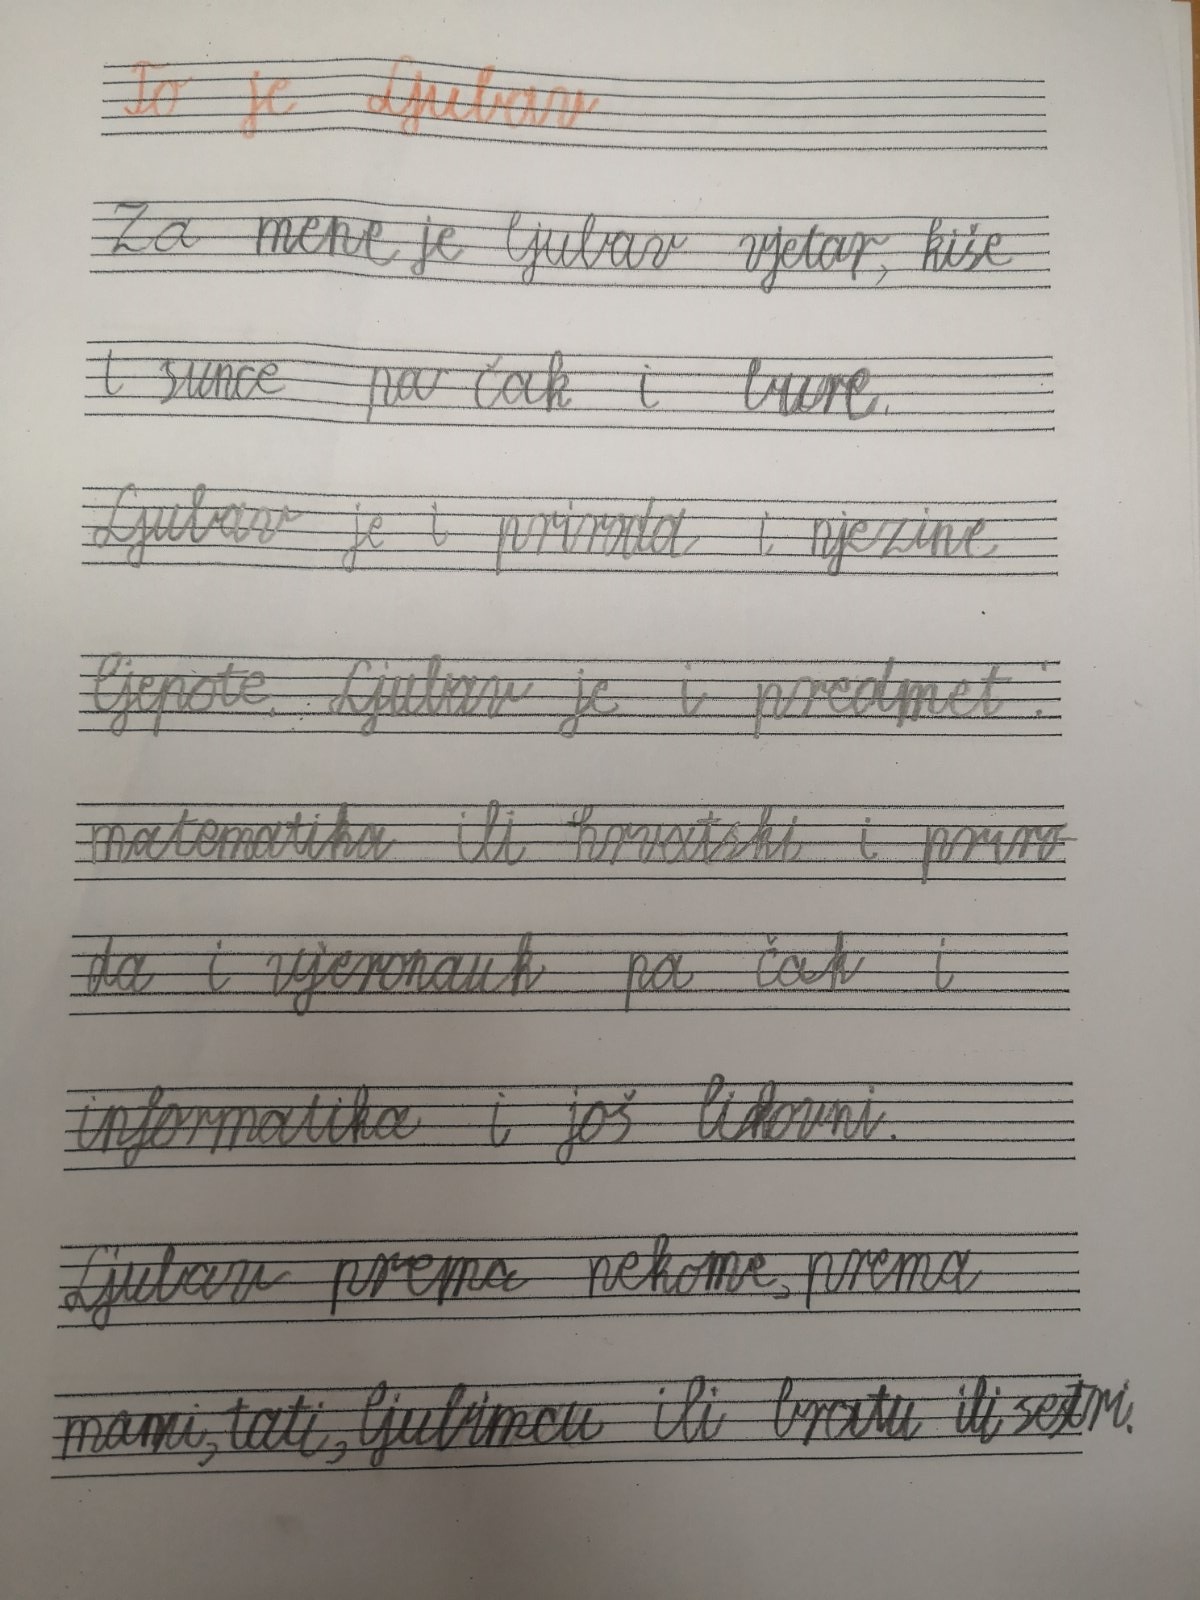 To je Ljubav
Za mene je ljubav vjetar, kiše
i sunce pa čak i bure.
Ljubav je i priroda i njezine
ljepote. Ljubav je i predmet:
matematika ili hrvatski i priro-
da i vjeronauk pa čak i
informatika i još likovni.
Ljubav prema nekome, prema
mami, tati, ljubimcu ili bratu ili sestri.